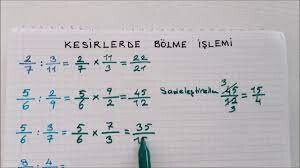 KESİRLERDE BÖLME İŞLEMİ
2/7 : 3/11 = 2/7 × 11/3 = 22/21
5/6 : 2/9 = 5/6 × 9/2 = 45/12 Sadeleştirelim 45/12 = 15/4
5/6 : 3/7 = 5/6 × 7/3 = 35